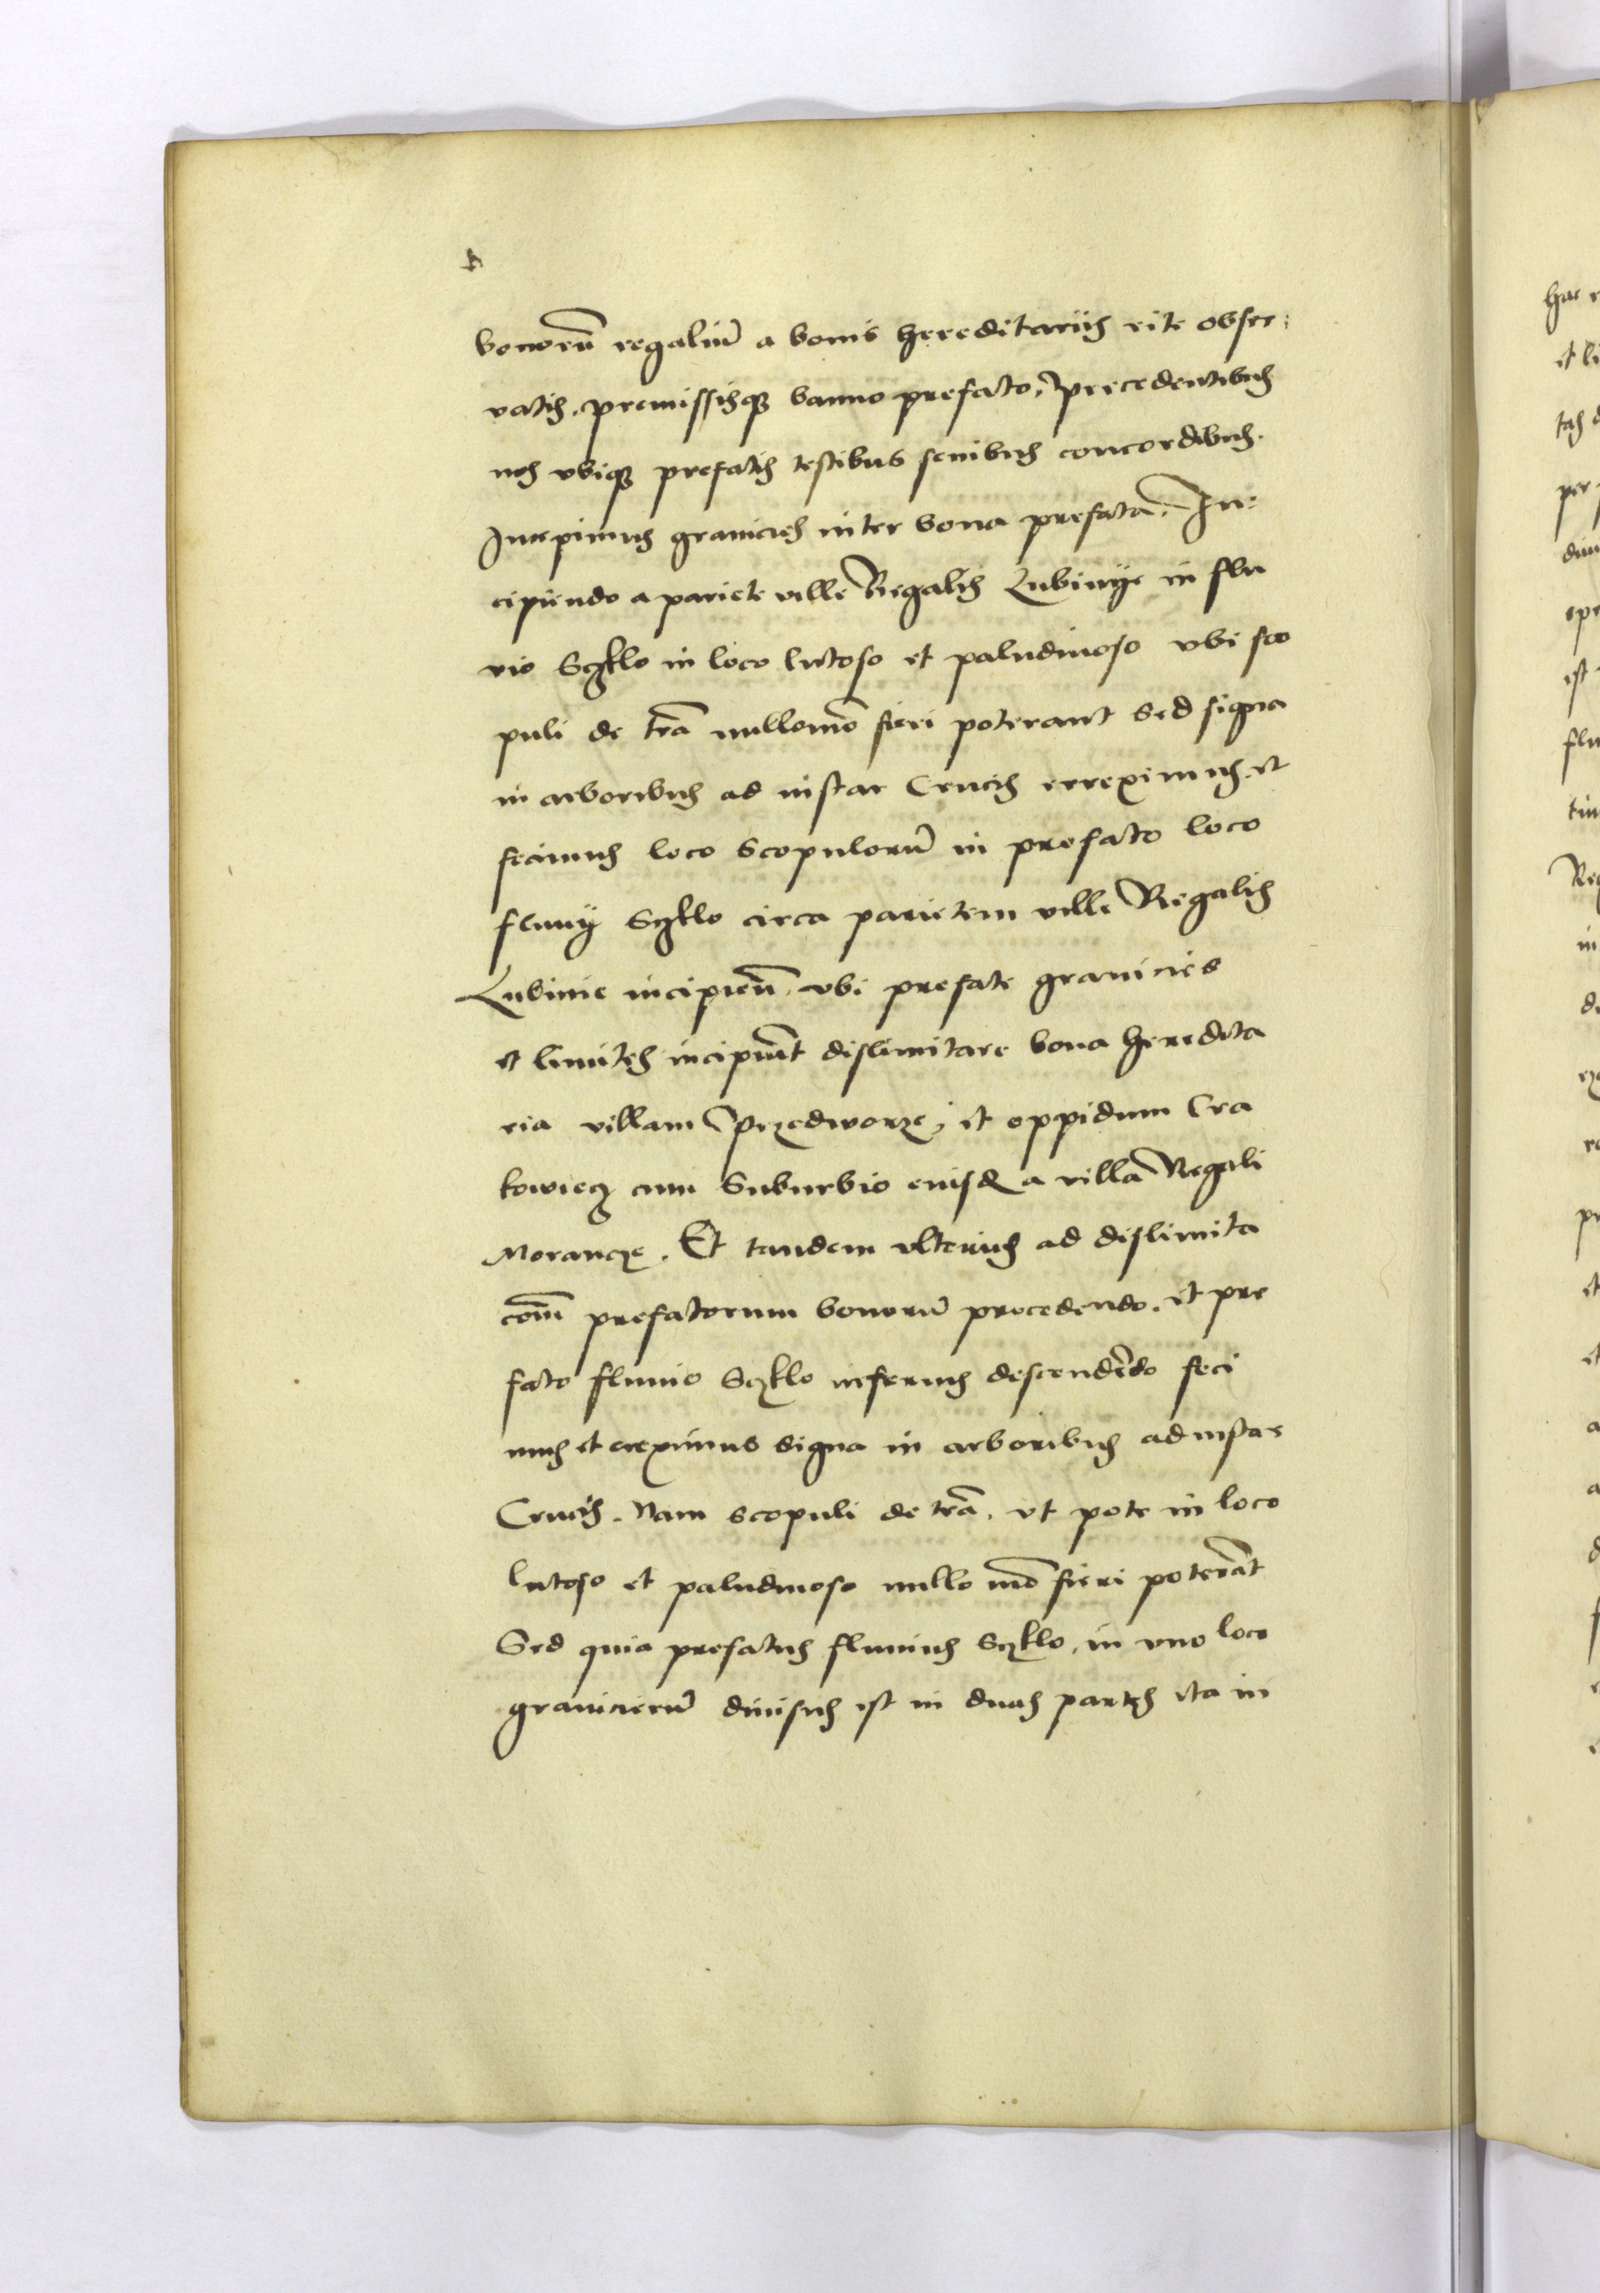 bonorũ regaliũ a bonis hereditariis rite obser:
vatis. premissisq̃ banno prefato. Precedentibus
nos ubiq̃ prefatis testibus senibus concordibus.
Incepimus granicies inter bona prefata. In:
cipiendo a pariete ville Regalis Lubinye in flu
vio Sczklo in loco lutoso et paludinoso ubi sco
puli de trã nullomõ fieri poterant sed signa
in arboribus ad instar Crucis erreximus. et
fecimus loco scopulorũ in prefato loco
fluuy Sczklo circa parietem ville Regalis
Lubinie incipieñ. ubi prefate granicies
et limites incipiũt dislimitare bona heredita
ria villam Przedworze, et oppidum Cra
kowiecz cum Suburbio eiusd̃ a villa Regali
Morancze. Et tandem ulterius ad dislimita
cõm prefatorum bonorũ procedendo. et pre
fato fluuio Sczklo inferius descendẽdo feci
mus et ereximus signa in arboribus ad instar
Crucis. Nam scopuli de trã. ut pote in loco
lutoso et paludinoso nullo mõ fieri poterãt
Sed quia prefatus fluuius Sczklo. in uno loco
granicierũ diuisus est in duas partes ita in